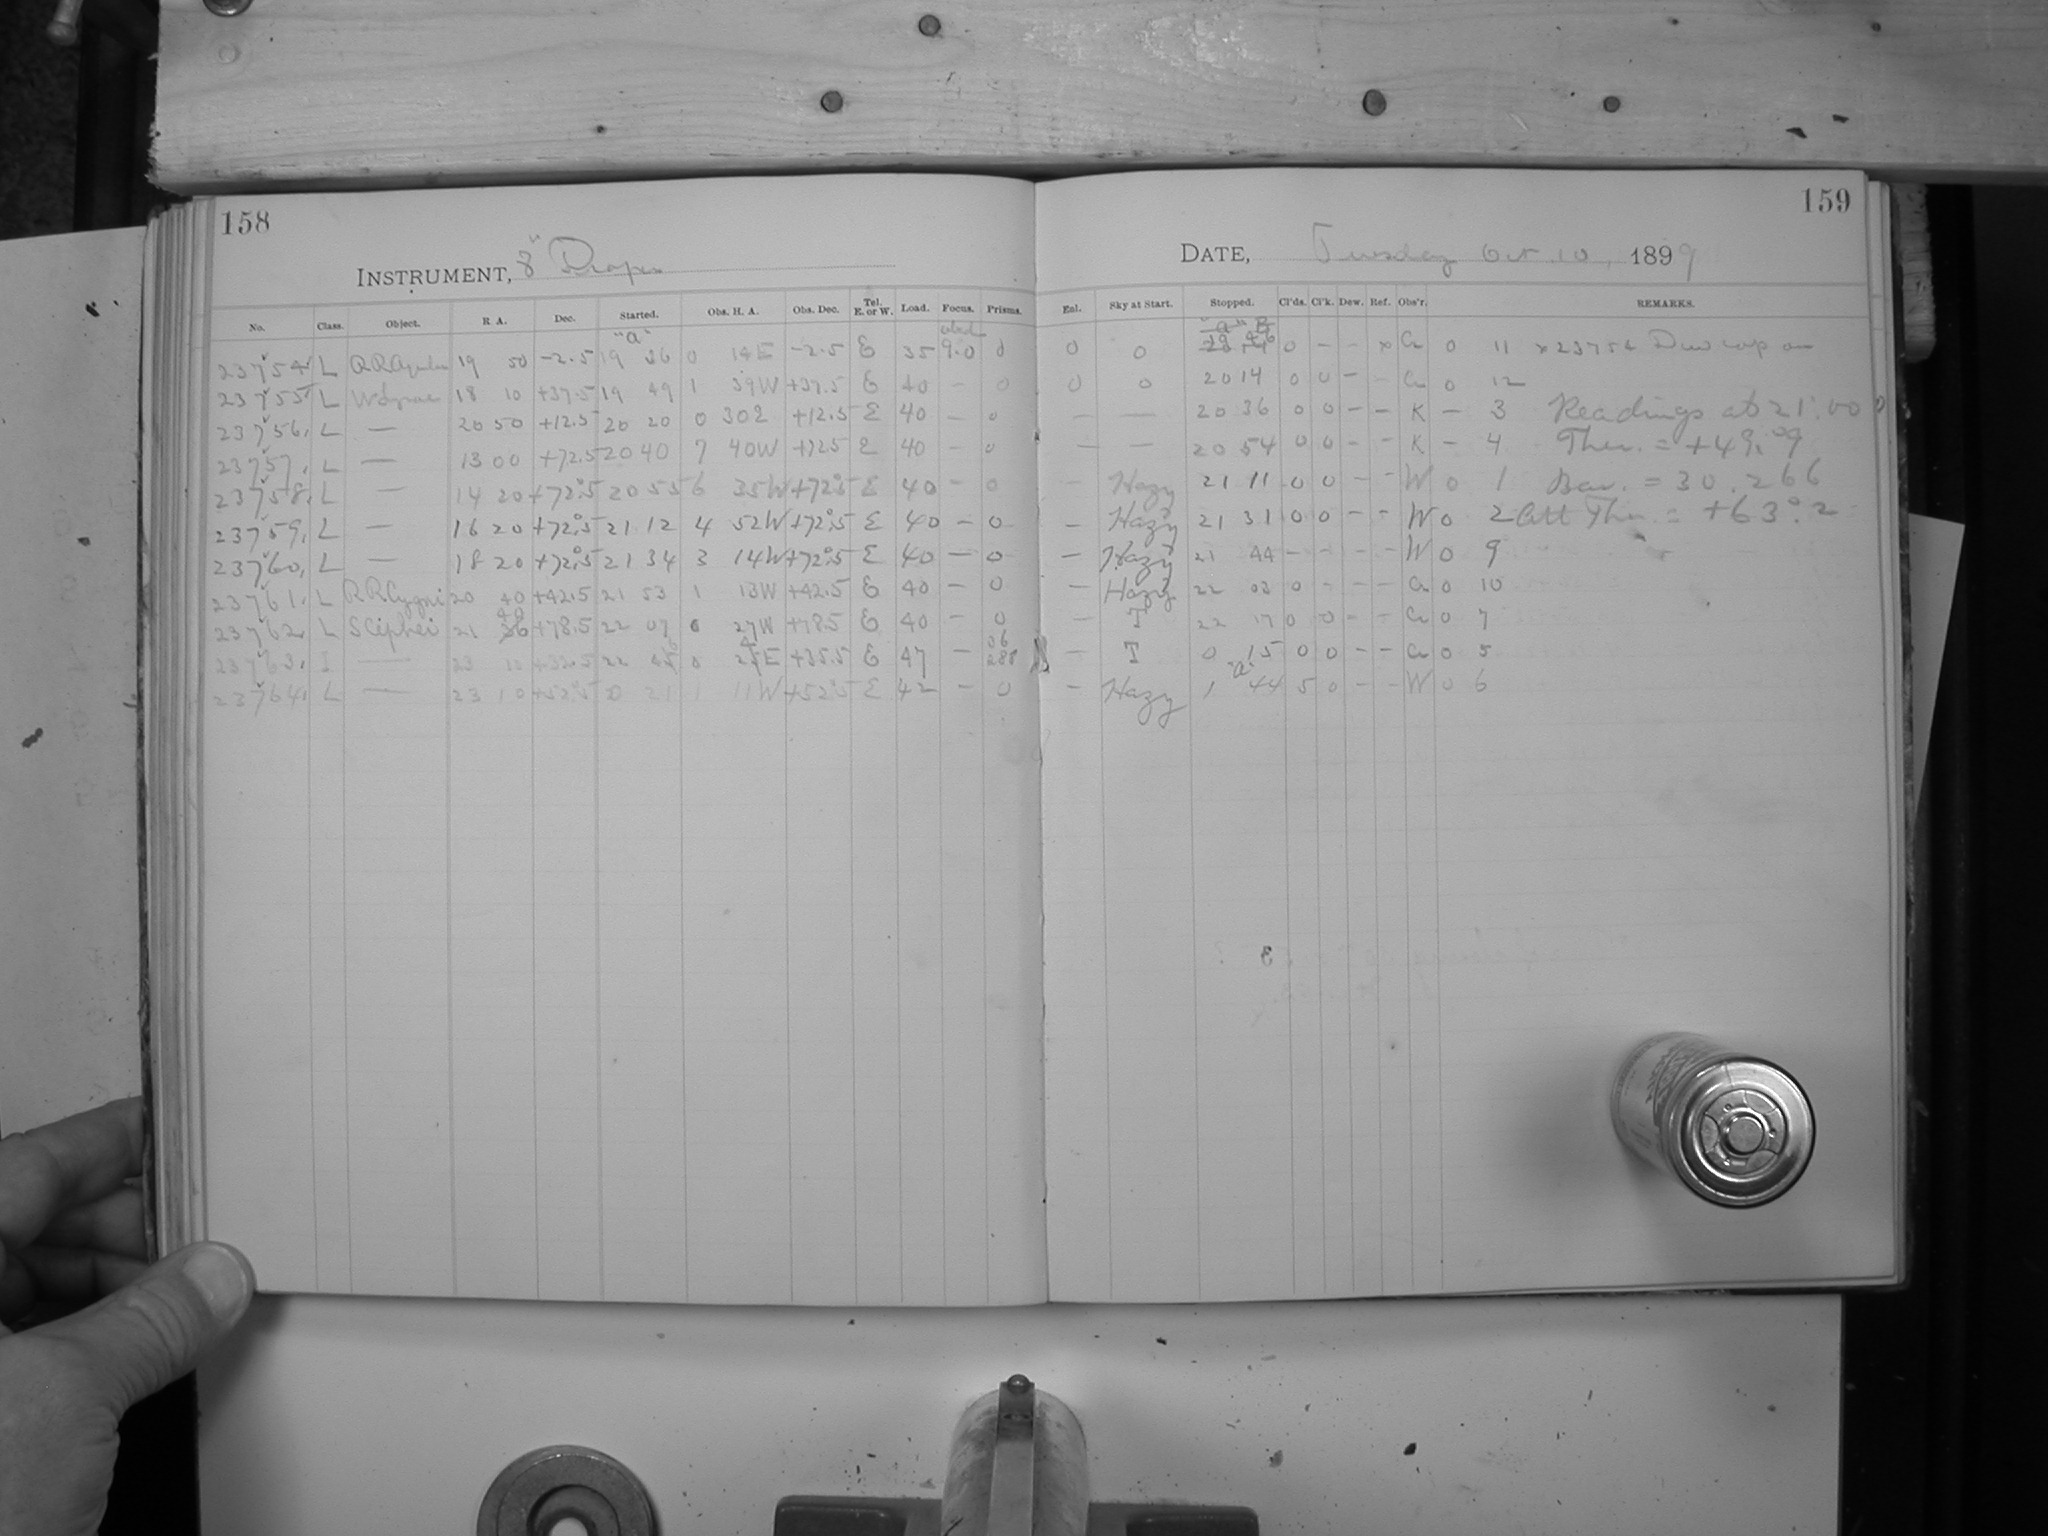 158
INSTRUMENT, 8" Draper
No. Class. Object. R. A. Dec. Started. Obs. H. A. Obs. Dec. Tel. E. or W. Load. Focus. Prisms.
"a"
23754 L RR Aquilae 19 50 -2.5 19 36 0 14E -2.5 E 35 9.0 0
23755 L W Lyrae 18 10 +37.5 19 49 1 39W +37.5 E 40 – 0
23756, L — 20 50 +12.5 20 20 0 30E +12.5 E 40 – 0
23757, L — 13 00 +72.5 20 40 7 40W +72.5 E 40 – 0
23758, L — 14 20 +72°.5 20 55 6 35W +72°.5 E 40 – 0
23759, L — 16 20 +72°.5 21 12 4 52W +72°.5 E 40 – 0
23760, L — 18 20 +72°.5 21 34 3 14W +72°.5 E 40 – 0
23761, L RR Cygni 20 40 +42.5 21 53 1 13W +42.5 E 40 – 0
23762, L S Cephei 21 +78.5 22 07 0 27W +78.5 E 40 – 0
23763, I — 23 10 22 0 +35.5 E 47 –
23764, L — 23 10 +52°.5 0 21 1 11W +52°.5 E 42 – 0
159
DATE, Tuesday Oct. 10, 1899
Enl. Sky at Start. Stopped. Cl'ds. Cl'k. Dew. Ref. Obs'r. REMARKS.
"a" B
0 0 0 – – x 0 11 x 23754 Dew cap on
0 0 20 14 0 0 – – 0 12
— — 20 36 0 0 – – K – 3 Readings at 21:00
— — 20 54 0 0 – – K – 4 Ther. = +49.°9
– Hazy 21 11 0 0 – – W 0 1 Bar. = 30.266
– Hazy 21 31 0 0 – – W 0 2 Att Ther. = +63°.2
– Hazy 21 44 – – – – W 0 9
– Hazy 22 03 0 – – – 0 10
– T 22 17 0 0 – – 0 7
– T 0 15 0 0 – – 0 5
"a"
– Hazy 1 44 5 0 – – W 0 6